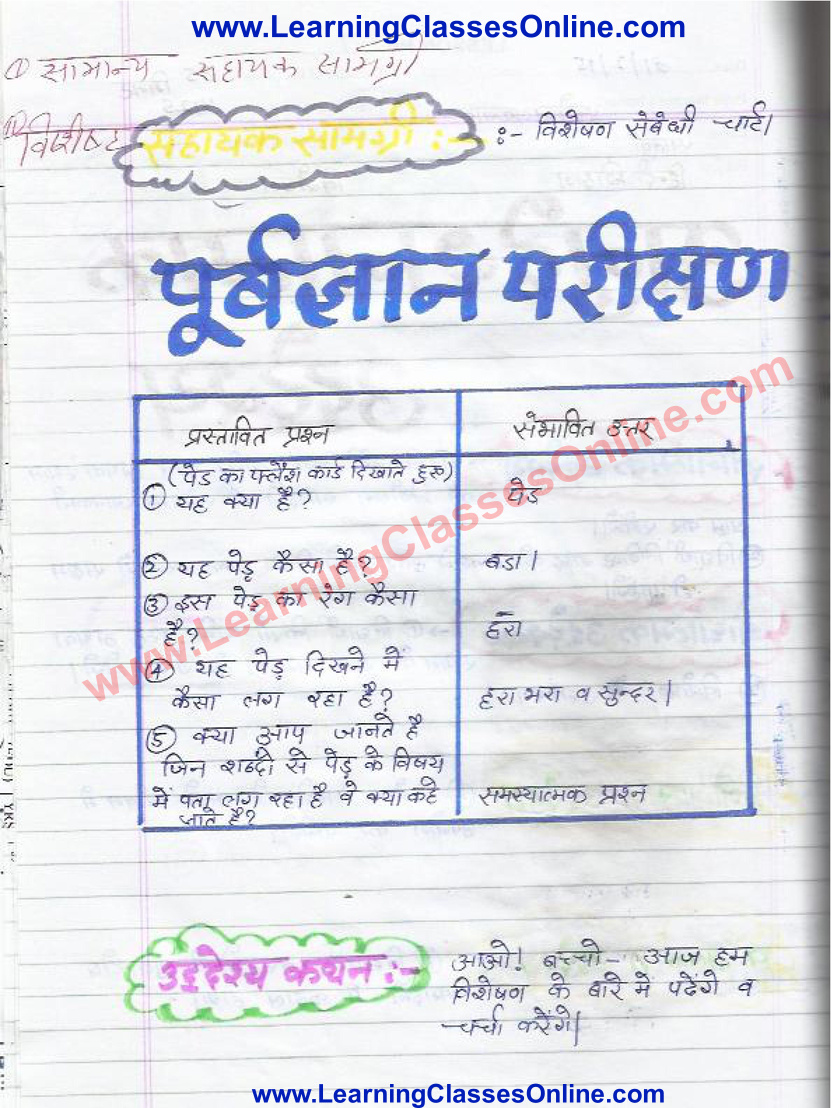 www.LearningClassesOnline.com
① सामान्य सहायक सामग्री
विशिष्ट सहायक सामग्री :- :- विशेषण संबंधी चार्ट।
पूर्वज्ञान परीक्षण
प्रस्तावित प्रश्न संभावित उत्तर
(पेड का फ्लैश कार्ड दिखाते हुए)
① यह क्या है? पेड
② यह पेड़ कैसा है? बडा।
③ इस पेड़ का रंग कैसा
है? हरा
④ यह पेड़ दिखने में
कैसा लग रहा है? हरा भरा व सुन्दर।
⑤ क्या आप जानते है
जिन शब्दों से पेड़ के विषय
में पता लग रहा है वे क्या कहे समस्यात्मक प्रश्न
जाते है?
www.LearningClassesOnline.com
उद्देश्य कथन :- आओ! बच्चो- आज हम
विशेषण के बारे में पढेंगे व
चर्चा करेंगे।
www.LearningClassesOnline.com